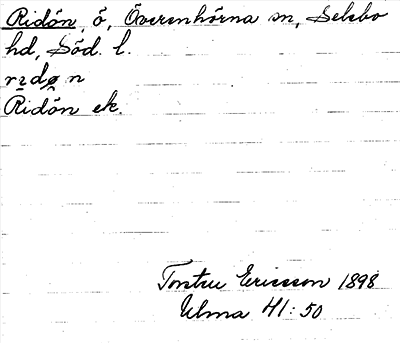 Ridön, ö, Överenhörna sn, Selebo
hd, Söd. l.
rıdø n
Ridön ek.
Torsten Ericsson 1898
Ulma 41:50